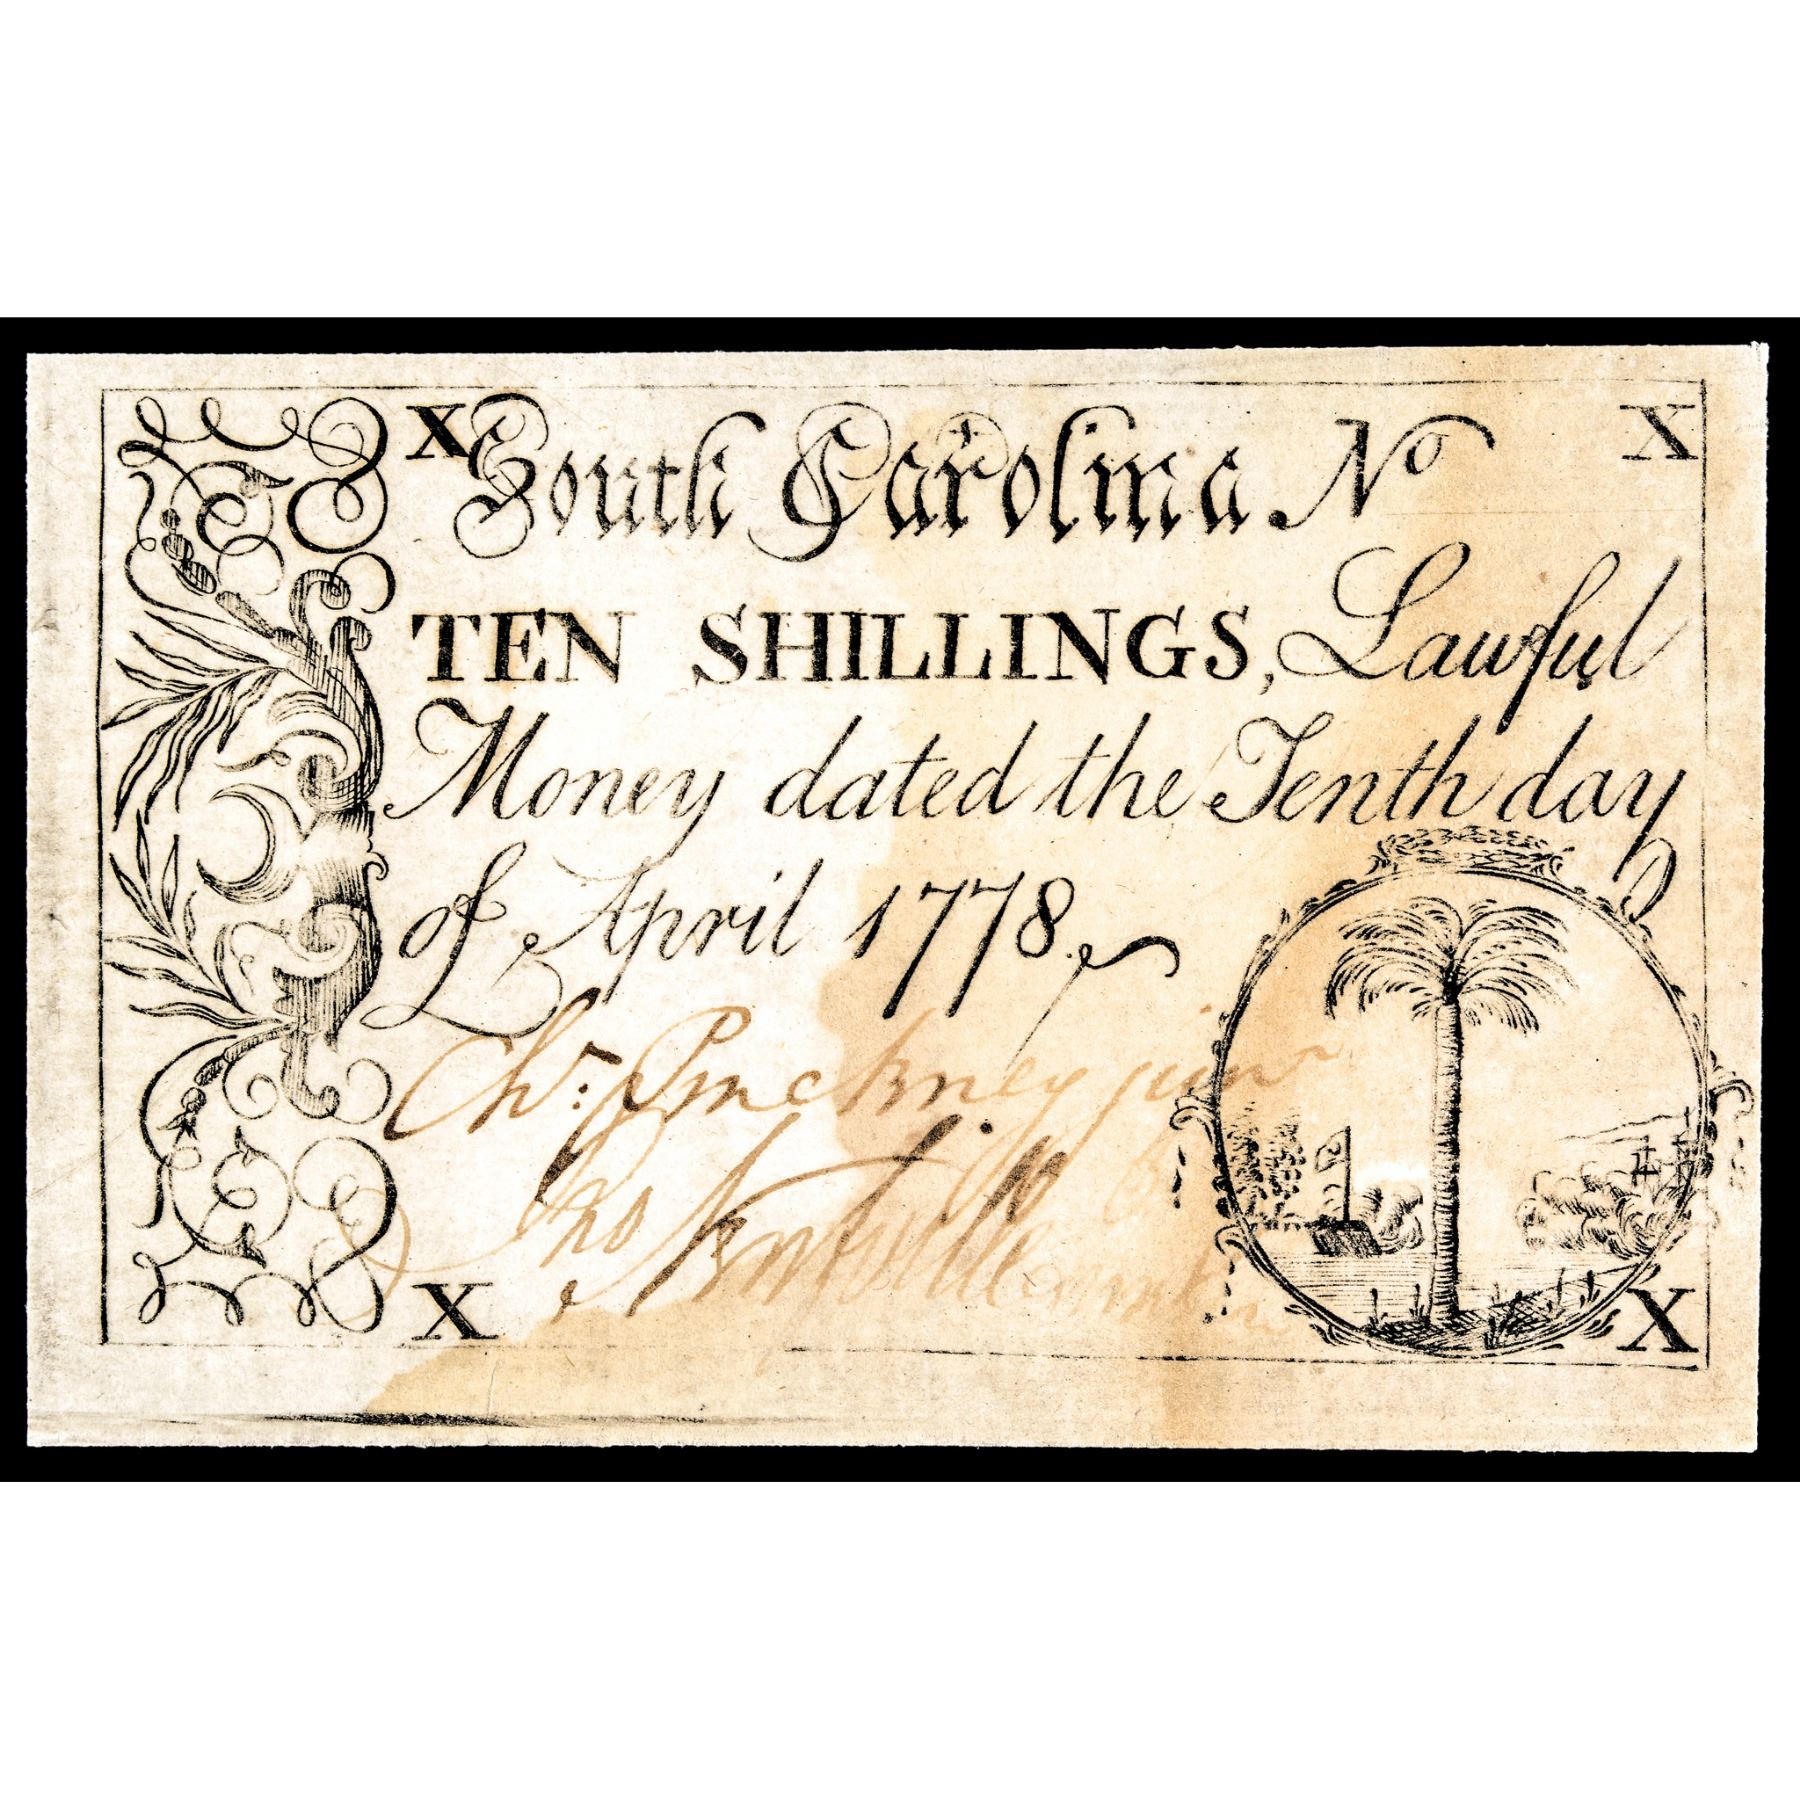 X South Carolina No X
TEN SHILLINGS, Lawful
Money dated the Tenth day
of April 1778.
Chs: Pinckney junr
X X